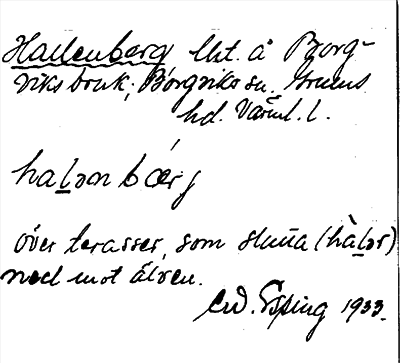 Hallenberg lht. å Borg-
viks bruk, Borgviks sn. Grums
hd. Värml. l.
haḷən bærj
över terasser, som slutta (hàḷər)
ned mot älven.
Esping 1933.